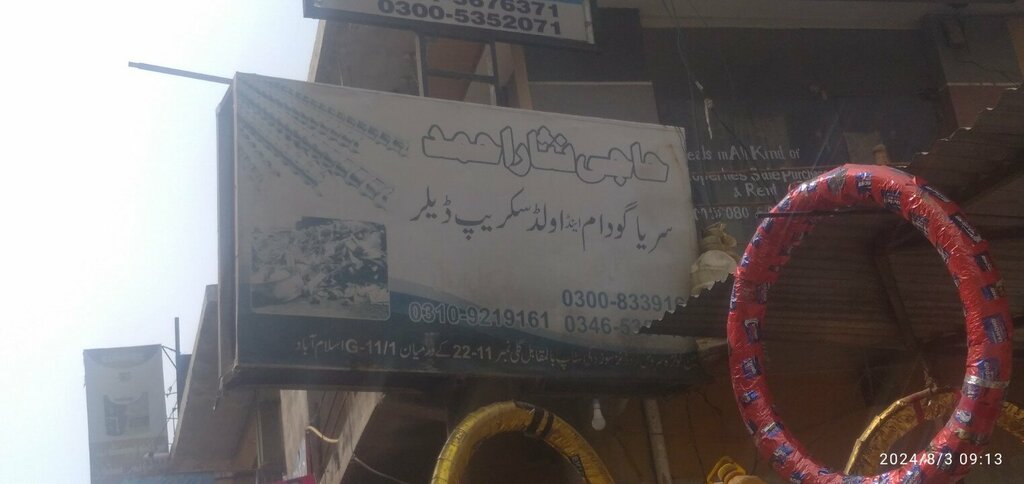 3676371
0300-5352071
حاجی نثار احمد
سریا گودام اینڈ اولڈ سکریپ ڈیلر
0300-833916
0310-9219161 0346-53
سٹاپ بالمقابل گلی نمبر 11-22 کے درمیان G-11/1 اسلام آباد
eals in All Kind of
operties Sale Purch
& Rent
2024/8/3 09:13